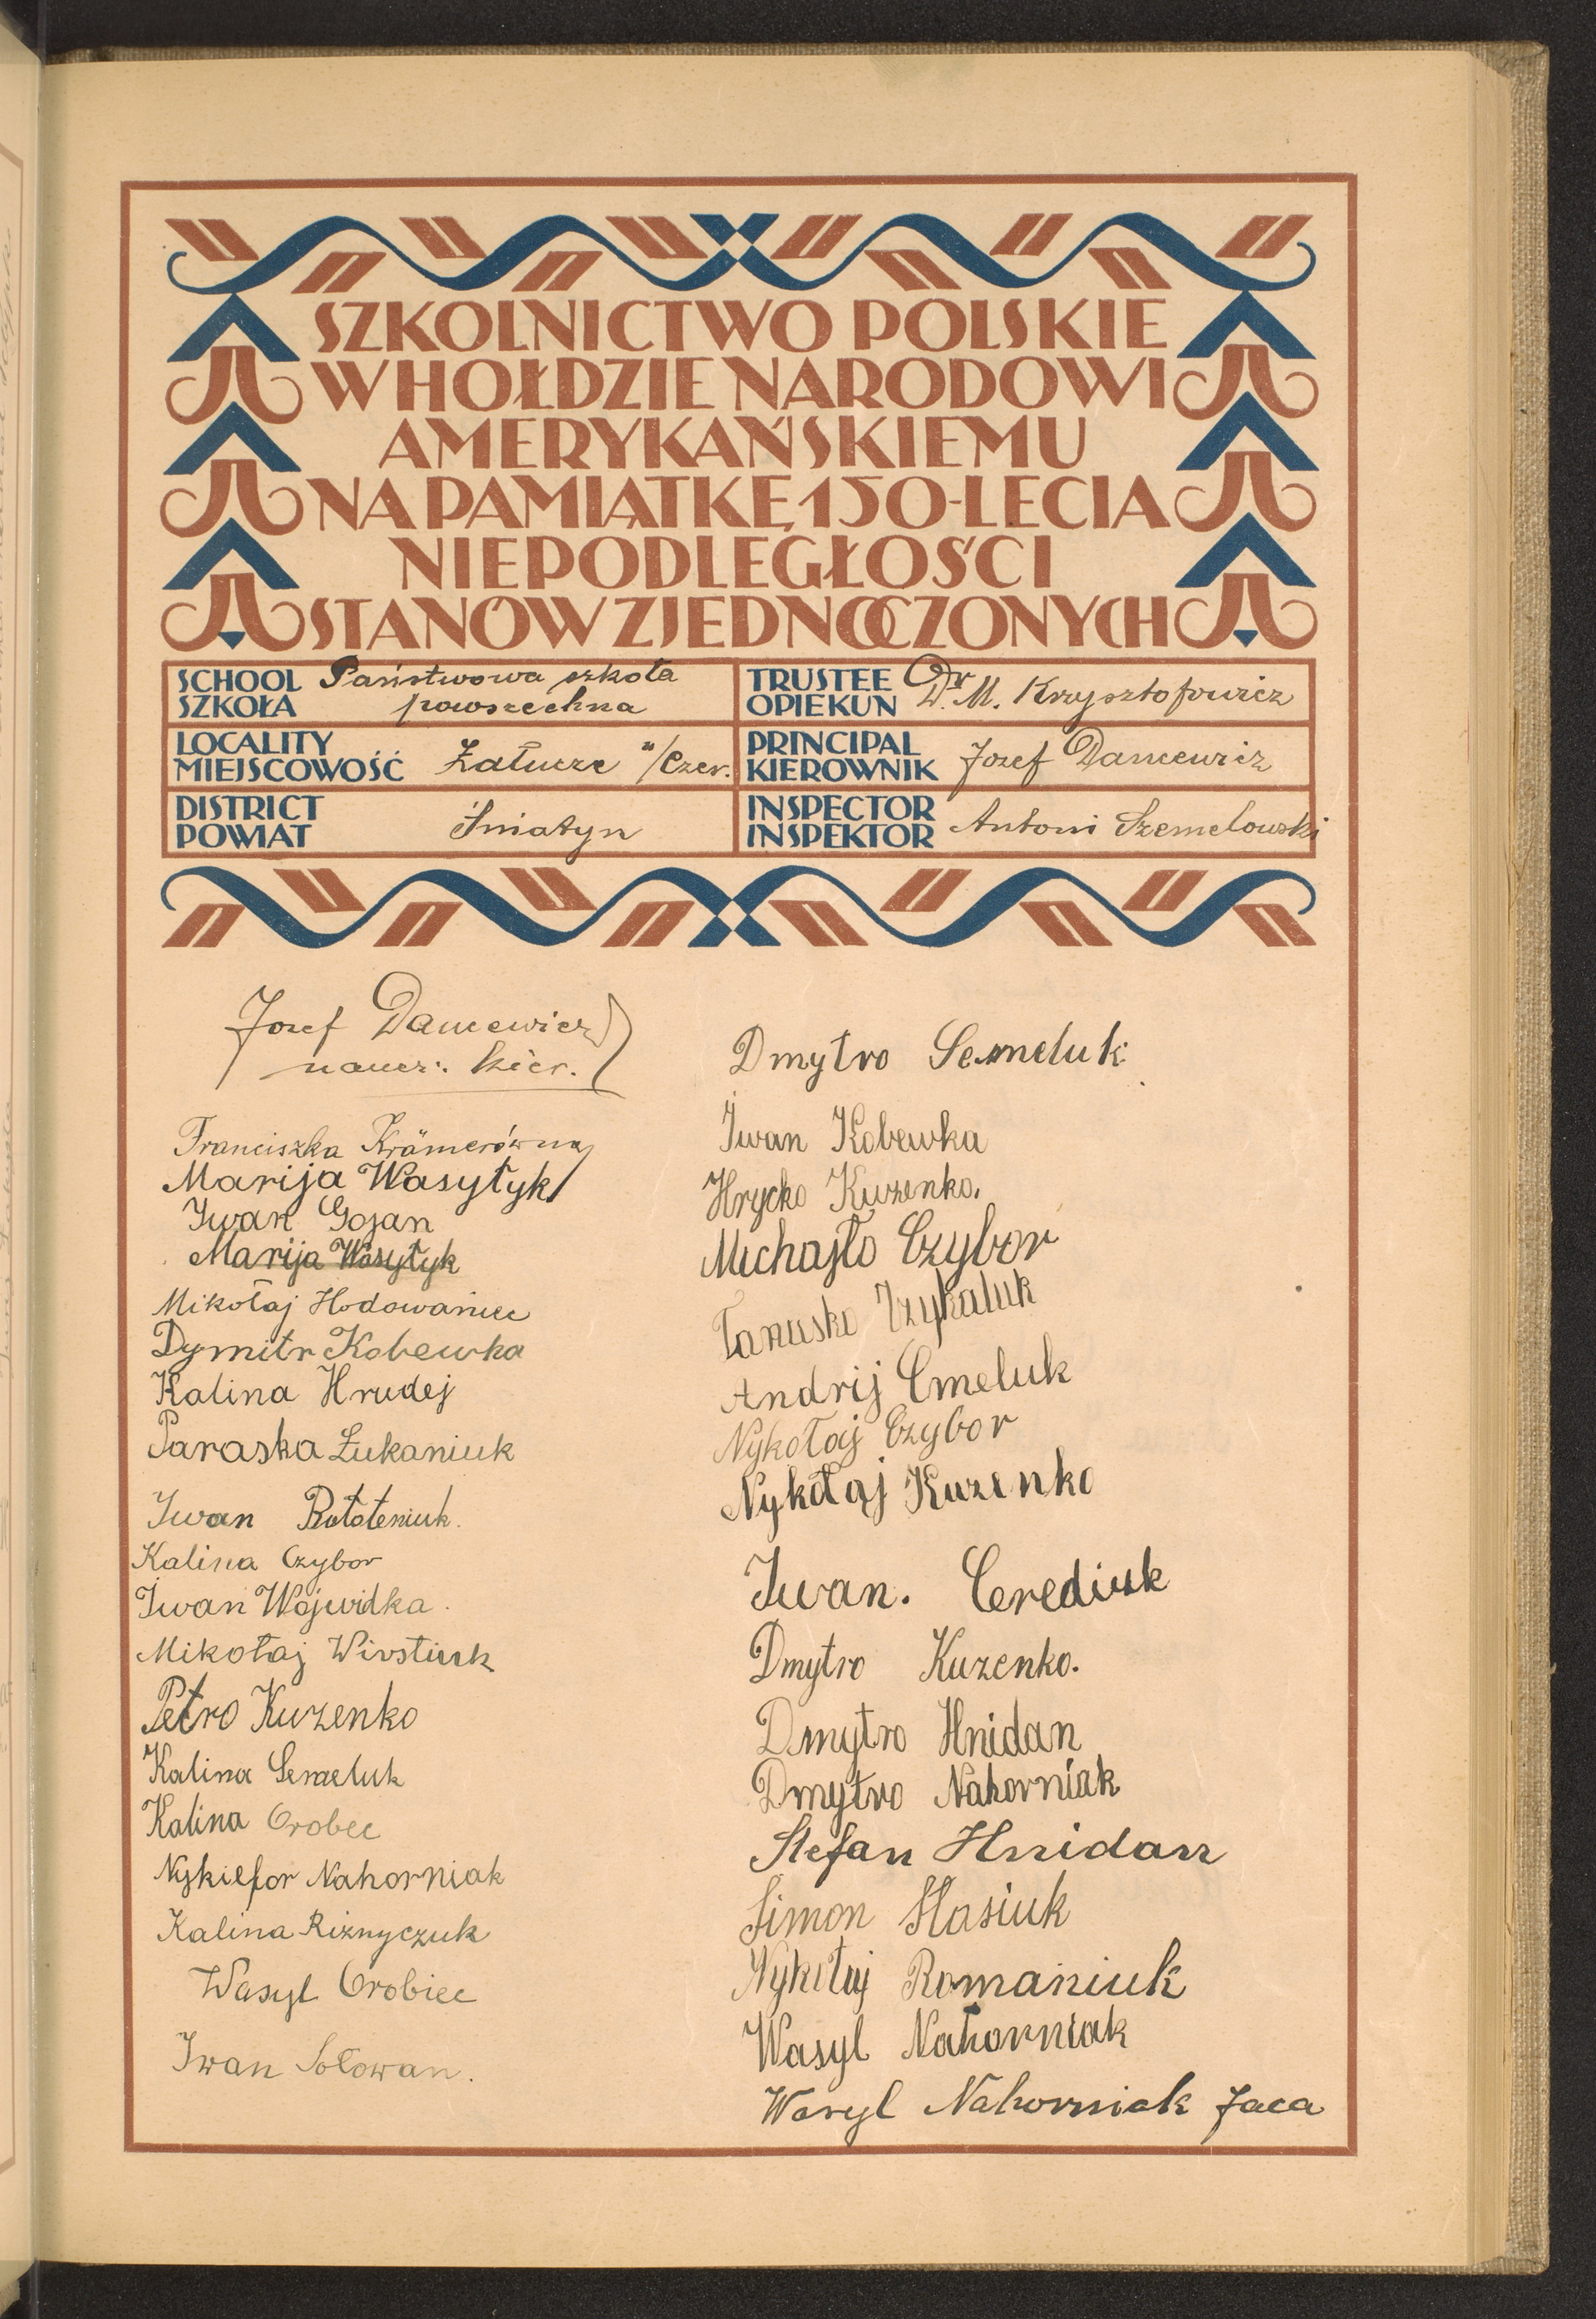 SZKOLNICTWO POLSKIE
W HOŁDZIE NARODOWI
AMERYKAŃSKIEMU
NA PAMIĄTKĘ 150-LECIA
NIEPODLEGŁOŚCI
STANÓW ZJEDNOCZONYCH
SCHOOL SZKOŁA Państwowa szkoła powszechna
TRUSTEE OPIEKUN Dr. M. Krzysztofowicz
LOCALITY MIEJSCOWOŚĆ Załucze n/Czer.
PRINCIPAL KIEROWNIK Jozef Dancewicz
DISTRICT POWIAT Śniatyn
INSPECTOR INSPEKTOR Antoni Szemelowski
Jozef Dancewicz
naucz: kier.
Franciszka Krämerówna
Marija Wasyłyk
Iwan Gojan
Marija Wasyłyk
Mikołaj Hodowaniec
Dymitr Kobewka
Kalina Hrudej
Paraska Łukaniuk
Iwan
Kalina Czybor
Iwan Wojwidka.
Mikołaj Wivstiuk
Petro Kuzenko
Kalina Semeluk
Kalina Orobec
Nykiefor Nahorniak
Kalina Riznyczuk
Wasyl Orobiec
Iwan Sołowan.
Dmytro Semeluk
Iwan Kobewka
Hrycko Kuzenko.
Michajło Czybor
Andrij Cmeluk
Nykołaj Czybor
Nykołaj Kuzenko
Iwan. Cerediuk
Dmytro Kuzenko.
Dmytro Hnidan
Dmytro Nahorniak
Stefan Hnidan
Simon Stasiuk
Nykołaj Romaniuk
Wasyl Nahorniak
Wasyl Nahorniak Jaca